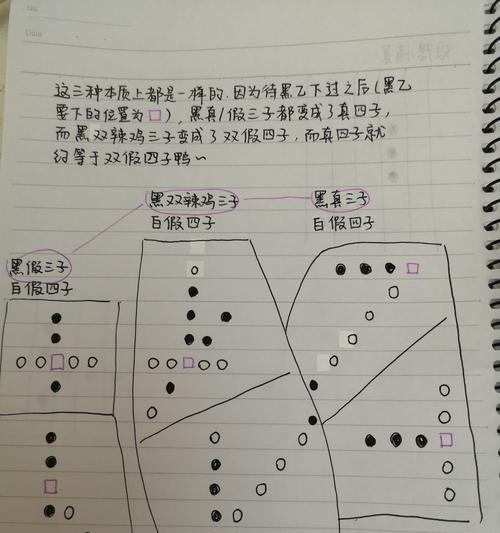 No
Date
这三种本质上都是一样的.因为待黑乙下过之后(黑乙
要下的位置为□), 黑真/假三子都变成了真四子,
而黑双辣鸡三子变成了双假四子, 而真四子就
约等于双假四子鸭~
黑双双辣鸡三子 黑真三子
白假四子 白假四子
黑假三子
白假四子